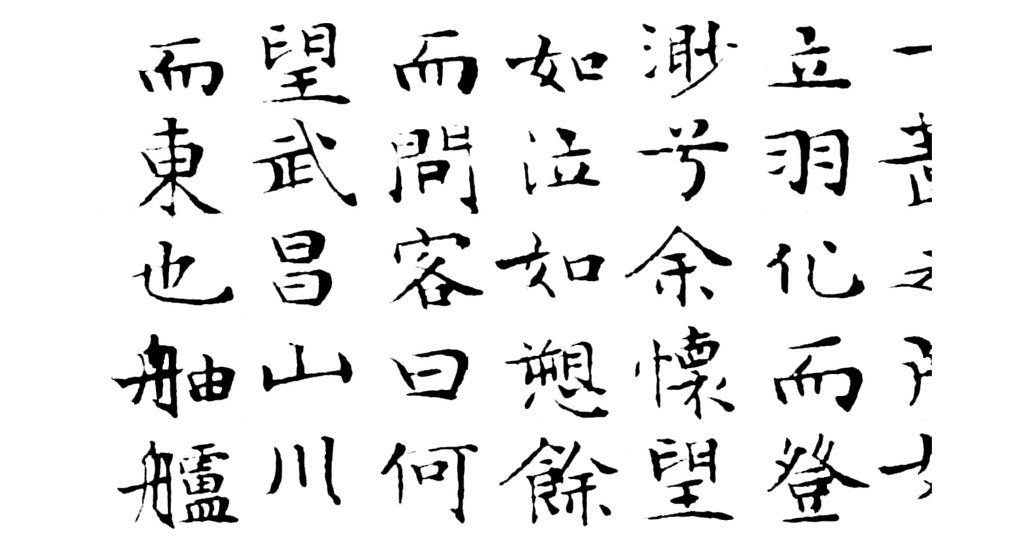 立羽化而登
渺兮余懷望
如泣如愬餘
而問客曰何
望武昌山川
而東也舳艫